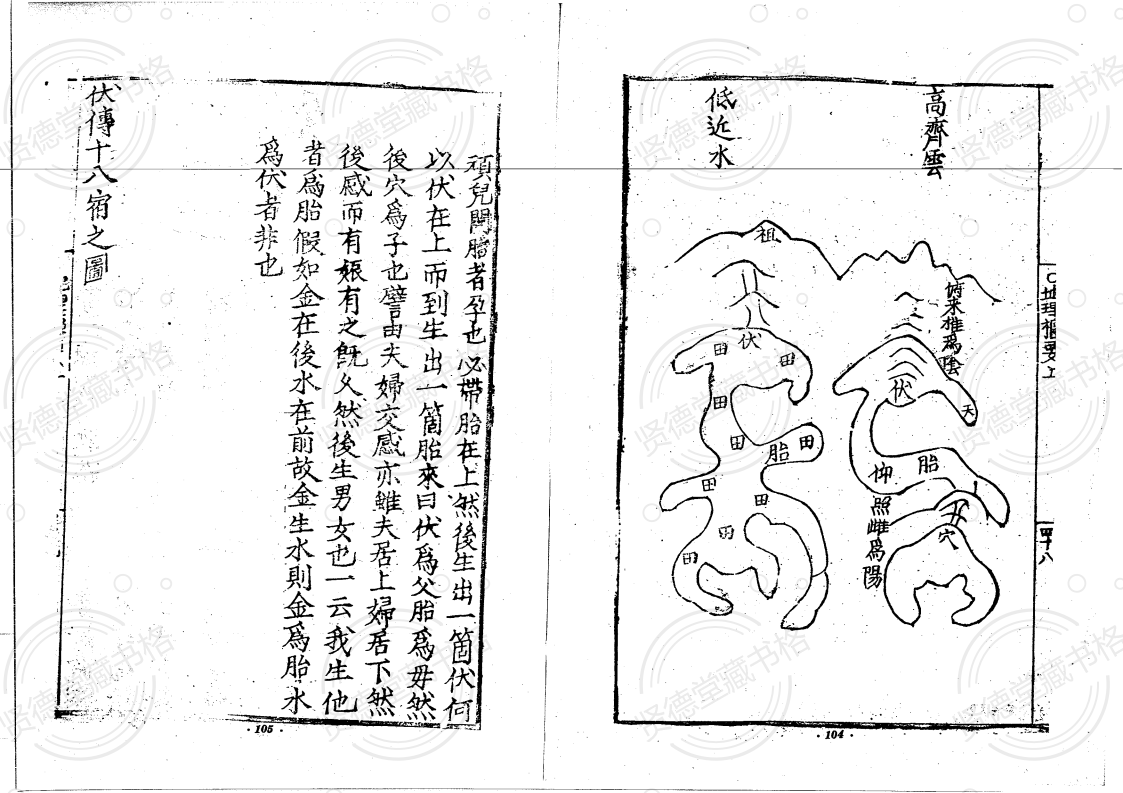 高齊雲
低近水
祖
俯来推為陰
伏
伏
天
田
田
田
田
田
胎
胎
仰
田
田
田
照雌爲陽
穴
地理樞要上
四十八
· 104 ·
頑兒開膪者孕也必帶胎在上然後生出一箇伏何
以伏在上而到生出一箇胎來曰伏爲父胎爲毋然
後穴爲子也譬由夫婦交感亦雖夫居上婦居下然
後感而有娠有之旣久然後生男女也一云我生他
者爲胎假如金在後水在前故金生水則金爲胎水
爲伏者非也
伏傳十八宿之圖
· 105 ·
贤德堂藏书格